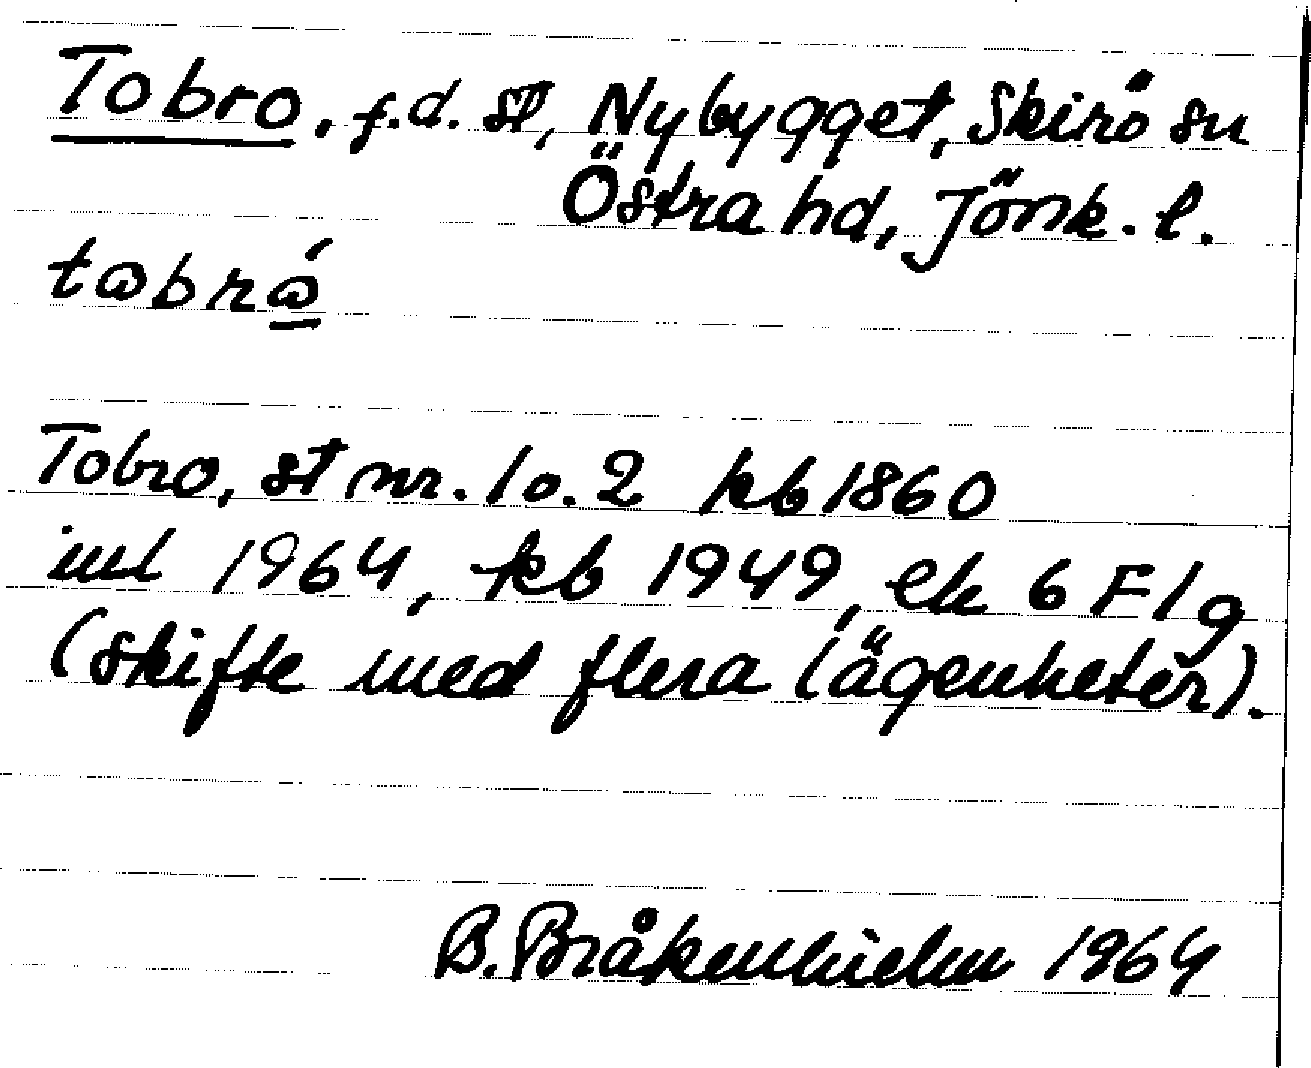 Tobro, f.d. st, Nybygget, Skirö sn
Östra hd, Jönk. l.
Tobro, st nr. 1 o. 2 kb 1860
inl 1964, kb 1949, ek 6 F 1 g
(skifte med flera lägenheter).
B. Bråkenhielm 1964